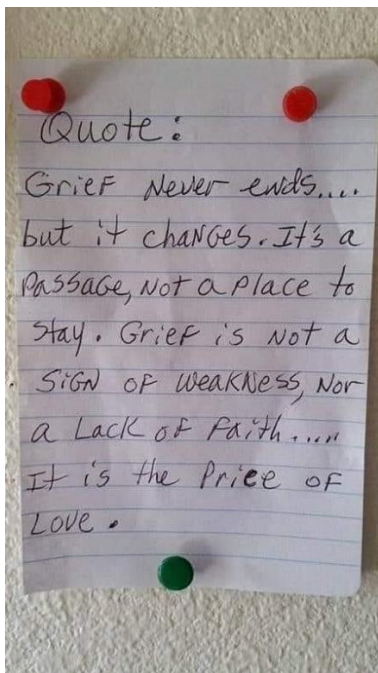 Quote:
Grief Never ends....
but it changes. It's a
Passage, Not a Place to
Stay. Grief is Not a
Sign of weakness, Nor
a Lack of Faith.....
It is the Price of
Love.